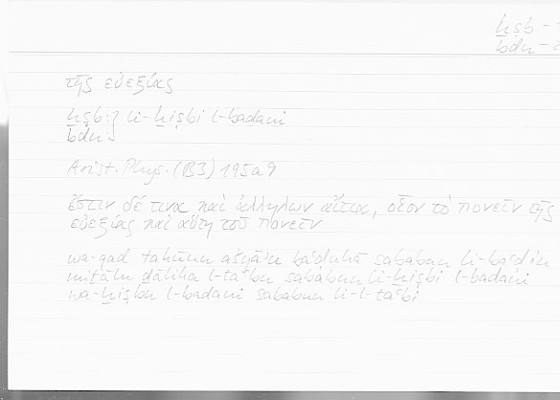 ḫṣb –
bdn –
τῆς εὐεξίας
ḫṣb : } li-ḫiṣbi l-badani
bdn :
Arist. Phys. (B3) 195a9
ἔστιν δέ τινα καὶ ἀλλήλων αἴτια, οἷον τὸ πονεῖν τῆς
εὐεξίας καὶ αὕτη τοῦ πονεῖν
wa-qad takūnu ašyāʾu baʿḍuhā sababun li-baʿḍin
miṯālu ḏālika l-taʿbu sababun li-ḫiṣbi l-badani
wa-ḫiṣbu l-badani sababun li-l-taʿbi